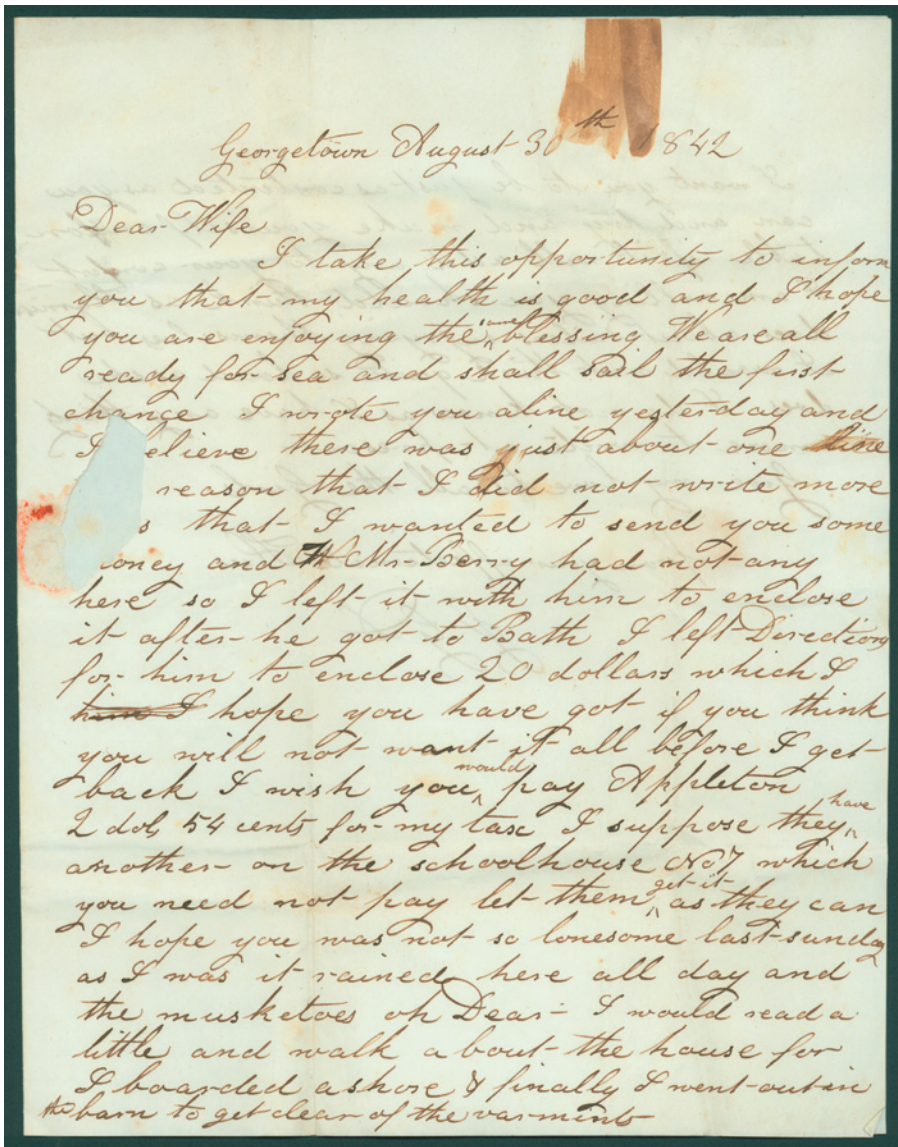 Georgetown August 30th 1842
Dear Wife
I take this opportunity to inform
you that my health is good and I hope
you are enjoying the same blessing We are all
ready for sea and shall sail the first
change I wrote you aline yesterday and
I elieve there was just about one line
reason that I did not write more
s that I wanted to send you some
oney and Mr Berry had not any
here so I left it with him to enclose
it after he got to Bath I left Directions
for him to enclose 20 dollars which I
him I hope you have got if you think
you will not want it all before I get
back I wish you would pay Appleton
2 dol, 54 cents for my tax I suppose they have
another on the schoolhouse No 7 which
you need not pay let them get it as they can
I hope you was not so lonesome last sunday
as I was it rained here all day and
the musketoes oh Dear I would read a
little and walk about the house for
I boarded ashore & finally I went out in
the barn to get clear of the varmints